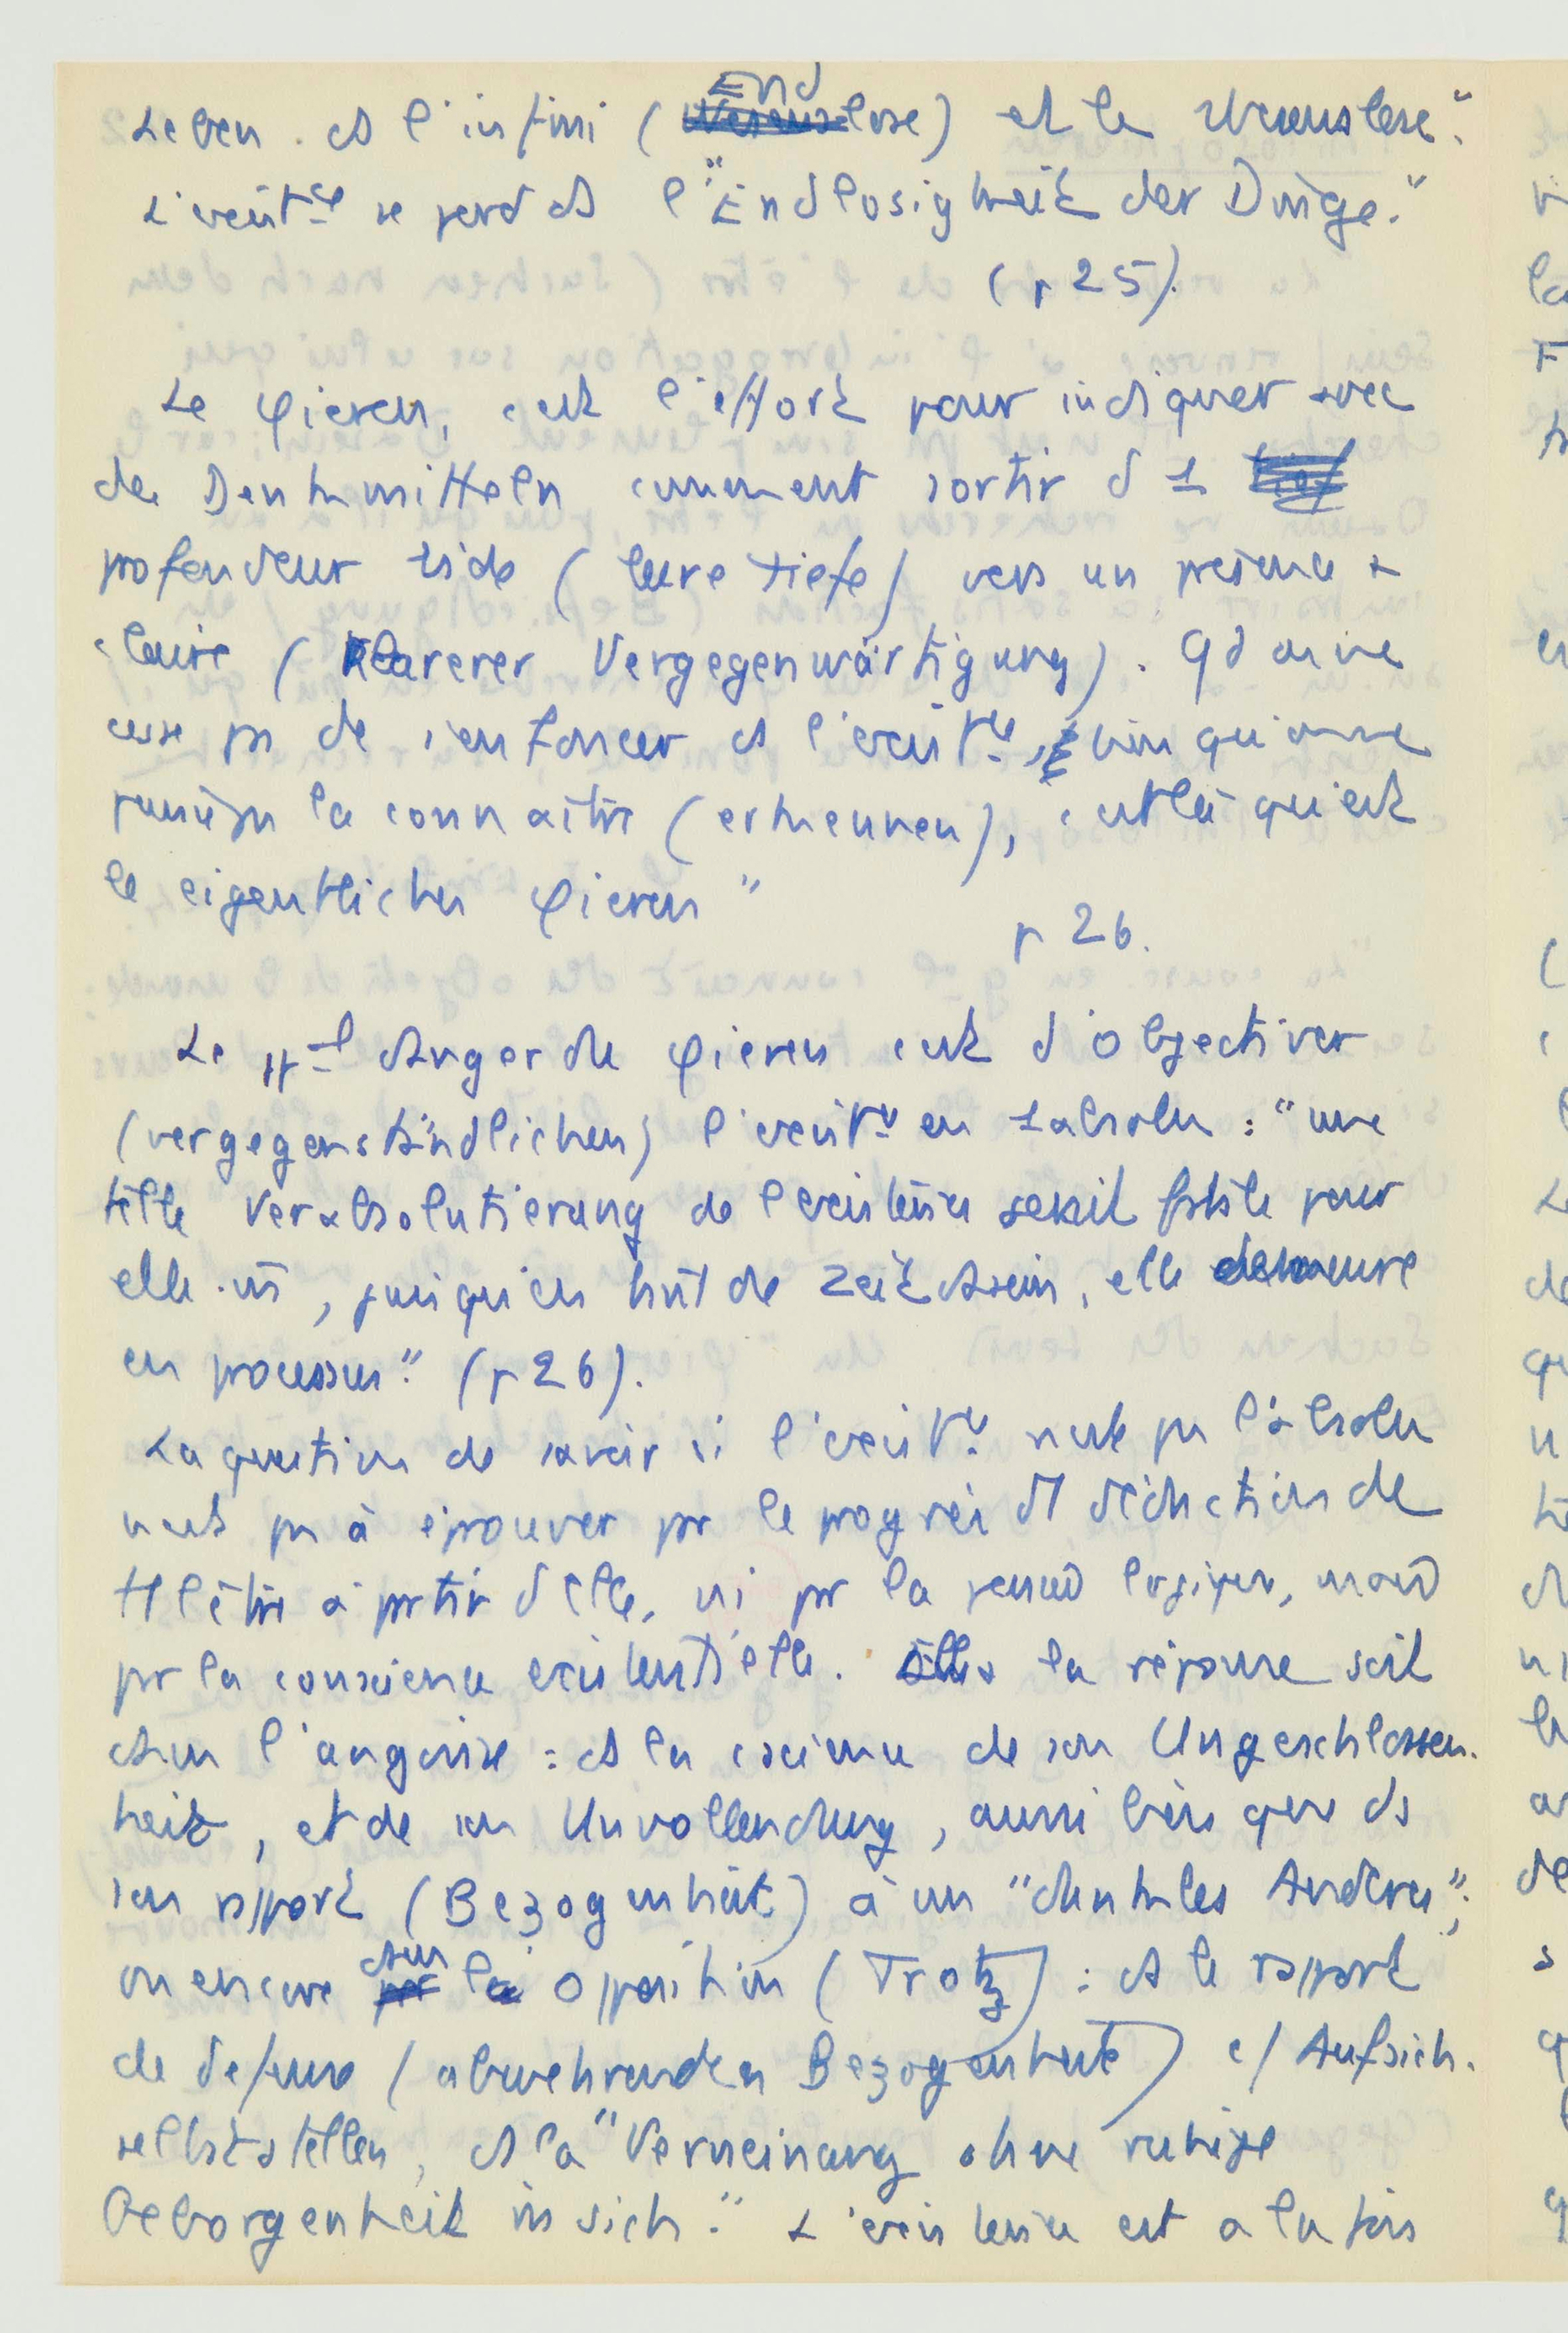 Leben. ds l'infini (Endlose) et le Wesenslose".
L'existce se perd ds l'"Endlosigkeit der Dinge."
(p 25).
Le φieren, c'est l'effort pour indiquer avec
des Denkmitteln comment sortir d 1
profondeur vide (leere Tiefe) vers un présence +
claire (klarerer Vergegenwärtigung). Qd on ne
cesse ps de s'enfoncer ds l'existce, bien qu'on ne
puisse la connaître (erkennen), c'est là qu'est
le eigentliches φieren"
p 26.
Le ppal danger du φieren est d'objectiver
(vergegenständlichen) l'existce en 1 absolu : "une
telle Verabsolutierung de l'existence serait fatale pour
elle-m̂, puisqu'en tant de Zeitdasein, elle demeure
en processus." (p 26).
La question de savoir si l'existce n'est ps l'absolu
n'est ps à éprouver pr le progrès d déduction de
tt l'être à partir d'elle, ni pr la pensée logique, mais
pr la conscience existentielle. la réponse soit
dans l'angoisse : ds la cscience de son Ungeschlossen-
heit, et de son Unvollendung, aussi bien que ds
son rapport (Bezogenheit) à un "dunkles Andres";
ou encore dans l'opposition (Trotz) : ds le rapport
de défense (abwehrenden Bezogenheit) c/ Aufsich-
selbststellen, ds la "Verneinung ohne ruhige
Geborgenheit in sich." L'existence est à la fois